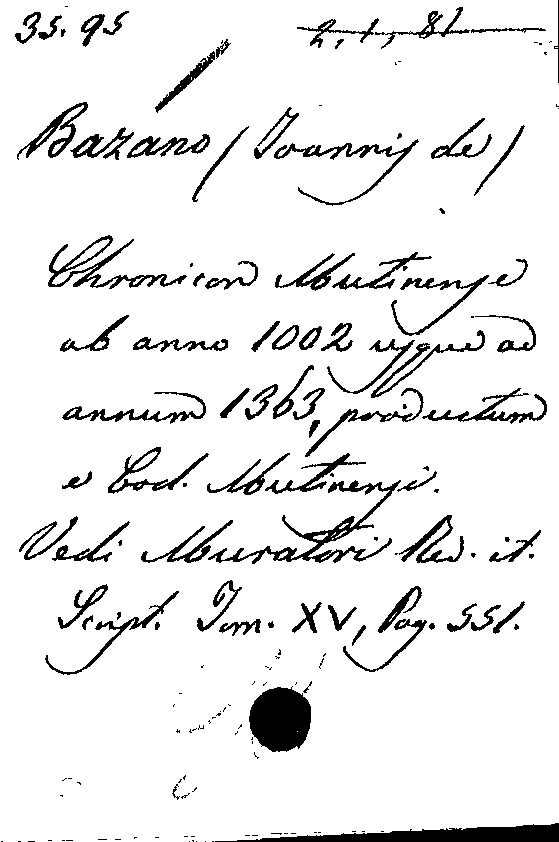 35.95 2,1,81
Bazano (Joannis de)
Chronicon Mutinense
ab anno 1002 usque ad
annum 1363, productum
e Cod. Mutinensi.
Vedi Muratori Rer. it.
Script. Tom. XV, Pag. 551.